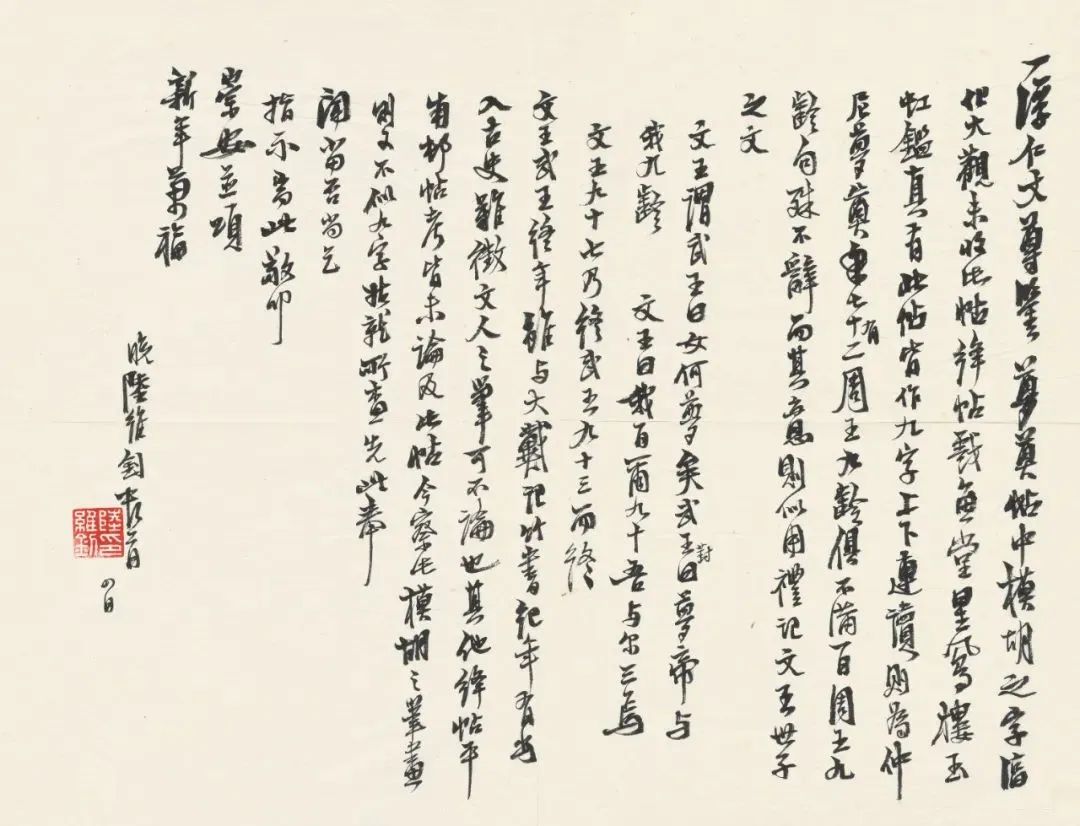 一浮仁丈尊鑒 夢奠帖中模胡之字淳
化大觀未收此帖絳帖戲魚堂星鳳樓玉
虹鑑真有此帖皆作九字上下連讀則為仲
尼夢奠年七十有二周王九齡俱不滿百周王九
齡句殊不辭而其意則似用禮記文王世子
之文
文王謂武王曰女何夢矣武王對曰夢帝与
我九齡 文王曰我百爾九十吾与尔三焉
文王九十七乃終武王九十三而終
文王武王終年雖与大戴記竹書紀年有出
入古史難徵文人之筆可不論也其他絳帖平
南邨帖考皆未論及此帖今察此模胡之筆畫
則又不似九字姑就所查先此奉
聞當否尚乞
指示耑此敬叩
崇安並頌
新年萬福
晚陸維釗頓首
四日
陸印維釗